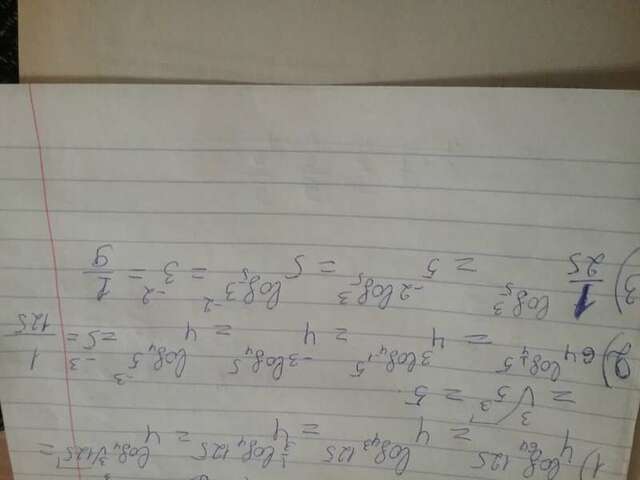 1) 4^{log_{64} 125} = 4^{log_{4^3} 125} = 4^{1/3 log_4 125} = 4^{log_4 ∛125} =
= ∛5^3 = 5
2) 64^{log_{1/4} 5} = 4^{3log_{4^{-1}} 5} = 4^{-3log_4 5} = 4^{log_4 5^{-3}} = 5^{-3} = 1/125
3) 1/25^{log_5 3} = 5^{-2log_5 3} = 5^{log_5 3^{-2}} = 3^{-2} = 1/9